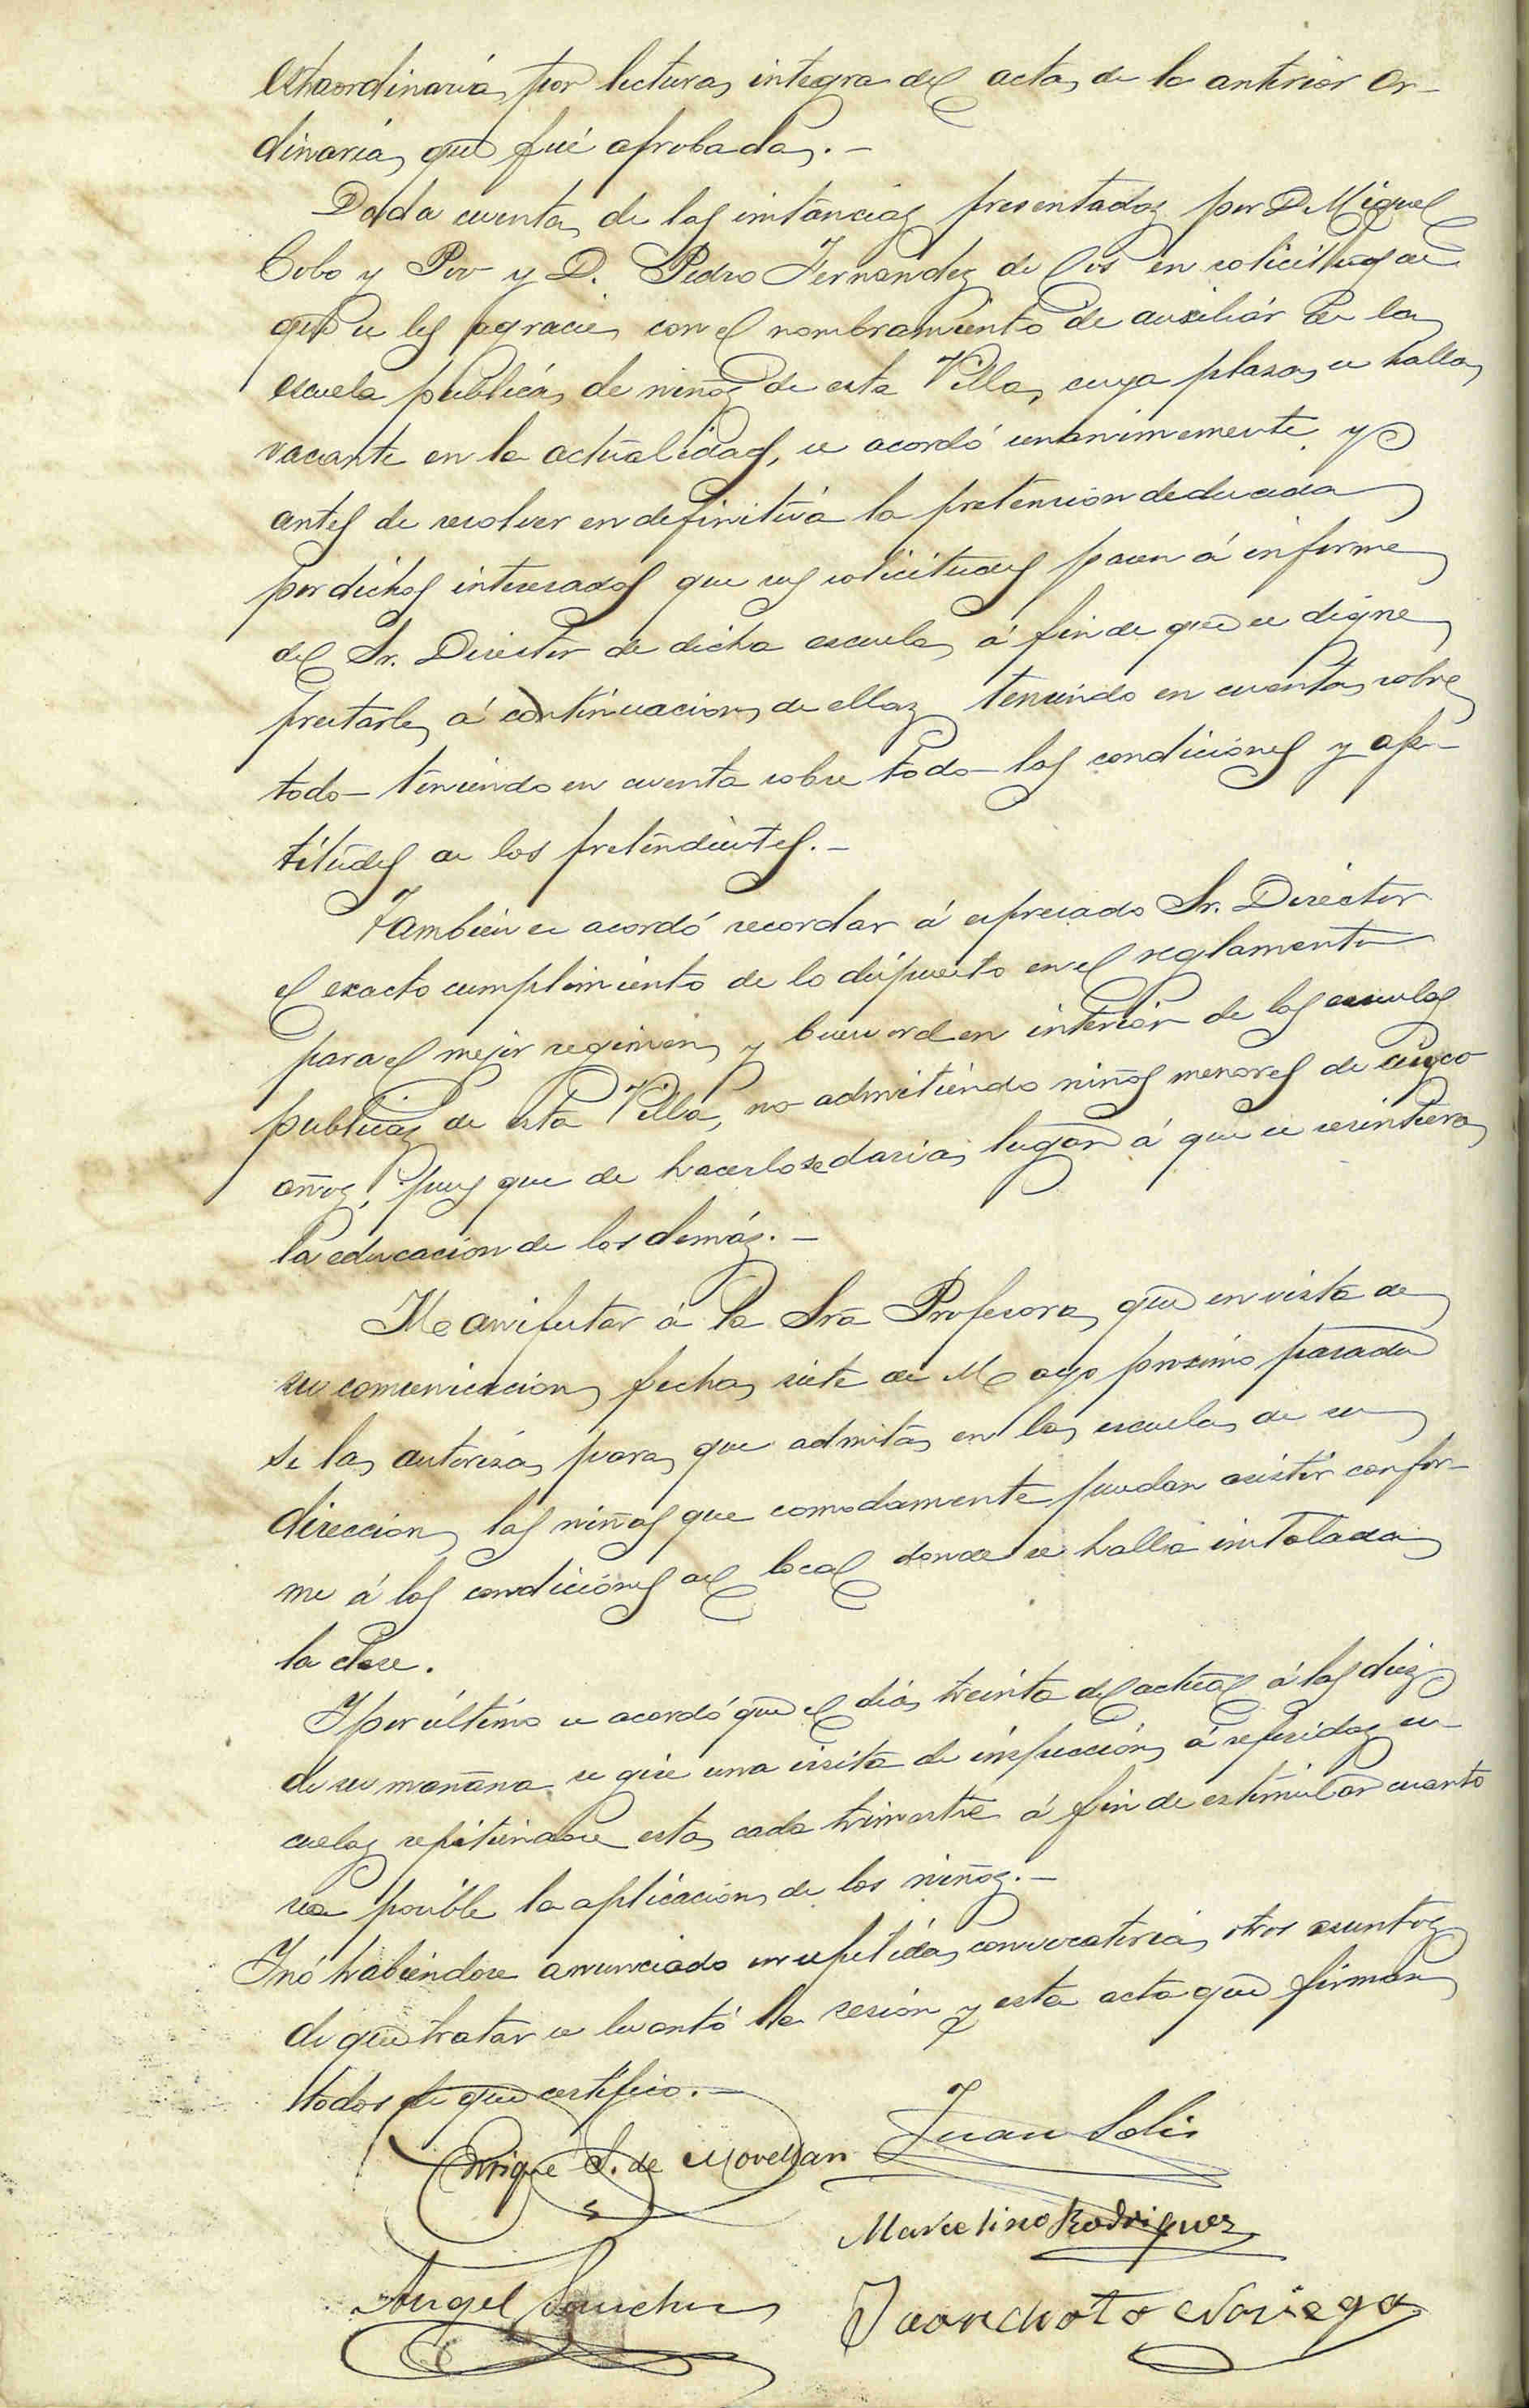 extraordinaria, por lectura integra del acta de la anterior or-
dinaria, que fué aprobada.-
Dada cuenta de las instancias presentadas por D Miguel
Cobo y Poo y D. Pedro Fernandez de Cos en solicitud de
que se les agracie con el nombramiento de auxiliár de la
escuela pública de niños de esta Villa, cuya plaza se halla
vacante en la actualidad, se acordó unanimemente y
antes de resolver en definitiva la pretension deducida
por dichos interesados que sus solicitudes pasen á informe
del Sr. Director de dicha escuela á fin de que se digne
prestarle á continuacion de ellas teniendo en cuenta sobre
todo- teniendo en cuenta sobre todo- las condiciones y ap-
titudes de los pretendientes.-
Tambien se acordó recordar á espresado Sr. Director
el exacto cumplimiento de lo dispuesto en el reglamento
para el mejor regimen y buen orden interior de las escuelas
publicas de esta Villa, no admitiendo niños menores de cinco
años, pues que de hacerlo se daria lugar á que se resintiera
la educacion de los demás.-
Manifestar á la Sra Profesora, que en vista de
su comunicacion fecha siete de Mayo proximo pasado
se la autoriza para que admita en la escuela de su
direccion las niñas que comodamente puedan asistir confor-
me á las condiciones del local donde se halla instalada
la clase.
Y por último se acordó que el dia treinta del actual á las diez
de su mañana se gire una visita de inspección á referidas es-
cuelas repitiendose esta cada trimestre á fin de estimular cuanto
sea posible la aplicacion de los niños.-
Y nó habiendose anunciado en repetida convocatoria otros asuntos
de que tratar se levantó la sesión y esta acta que firman
todos de que certifico.-
Enrique S. de Movellan Juan Solis
Marcelino Rodriguez
Angel Sanchez Noriega